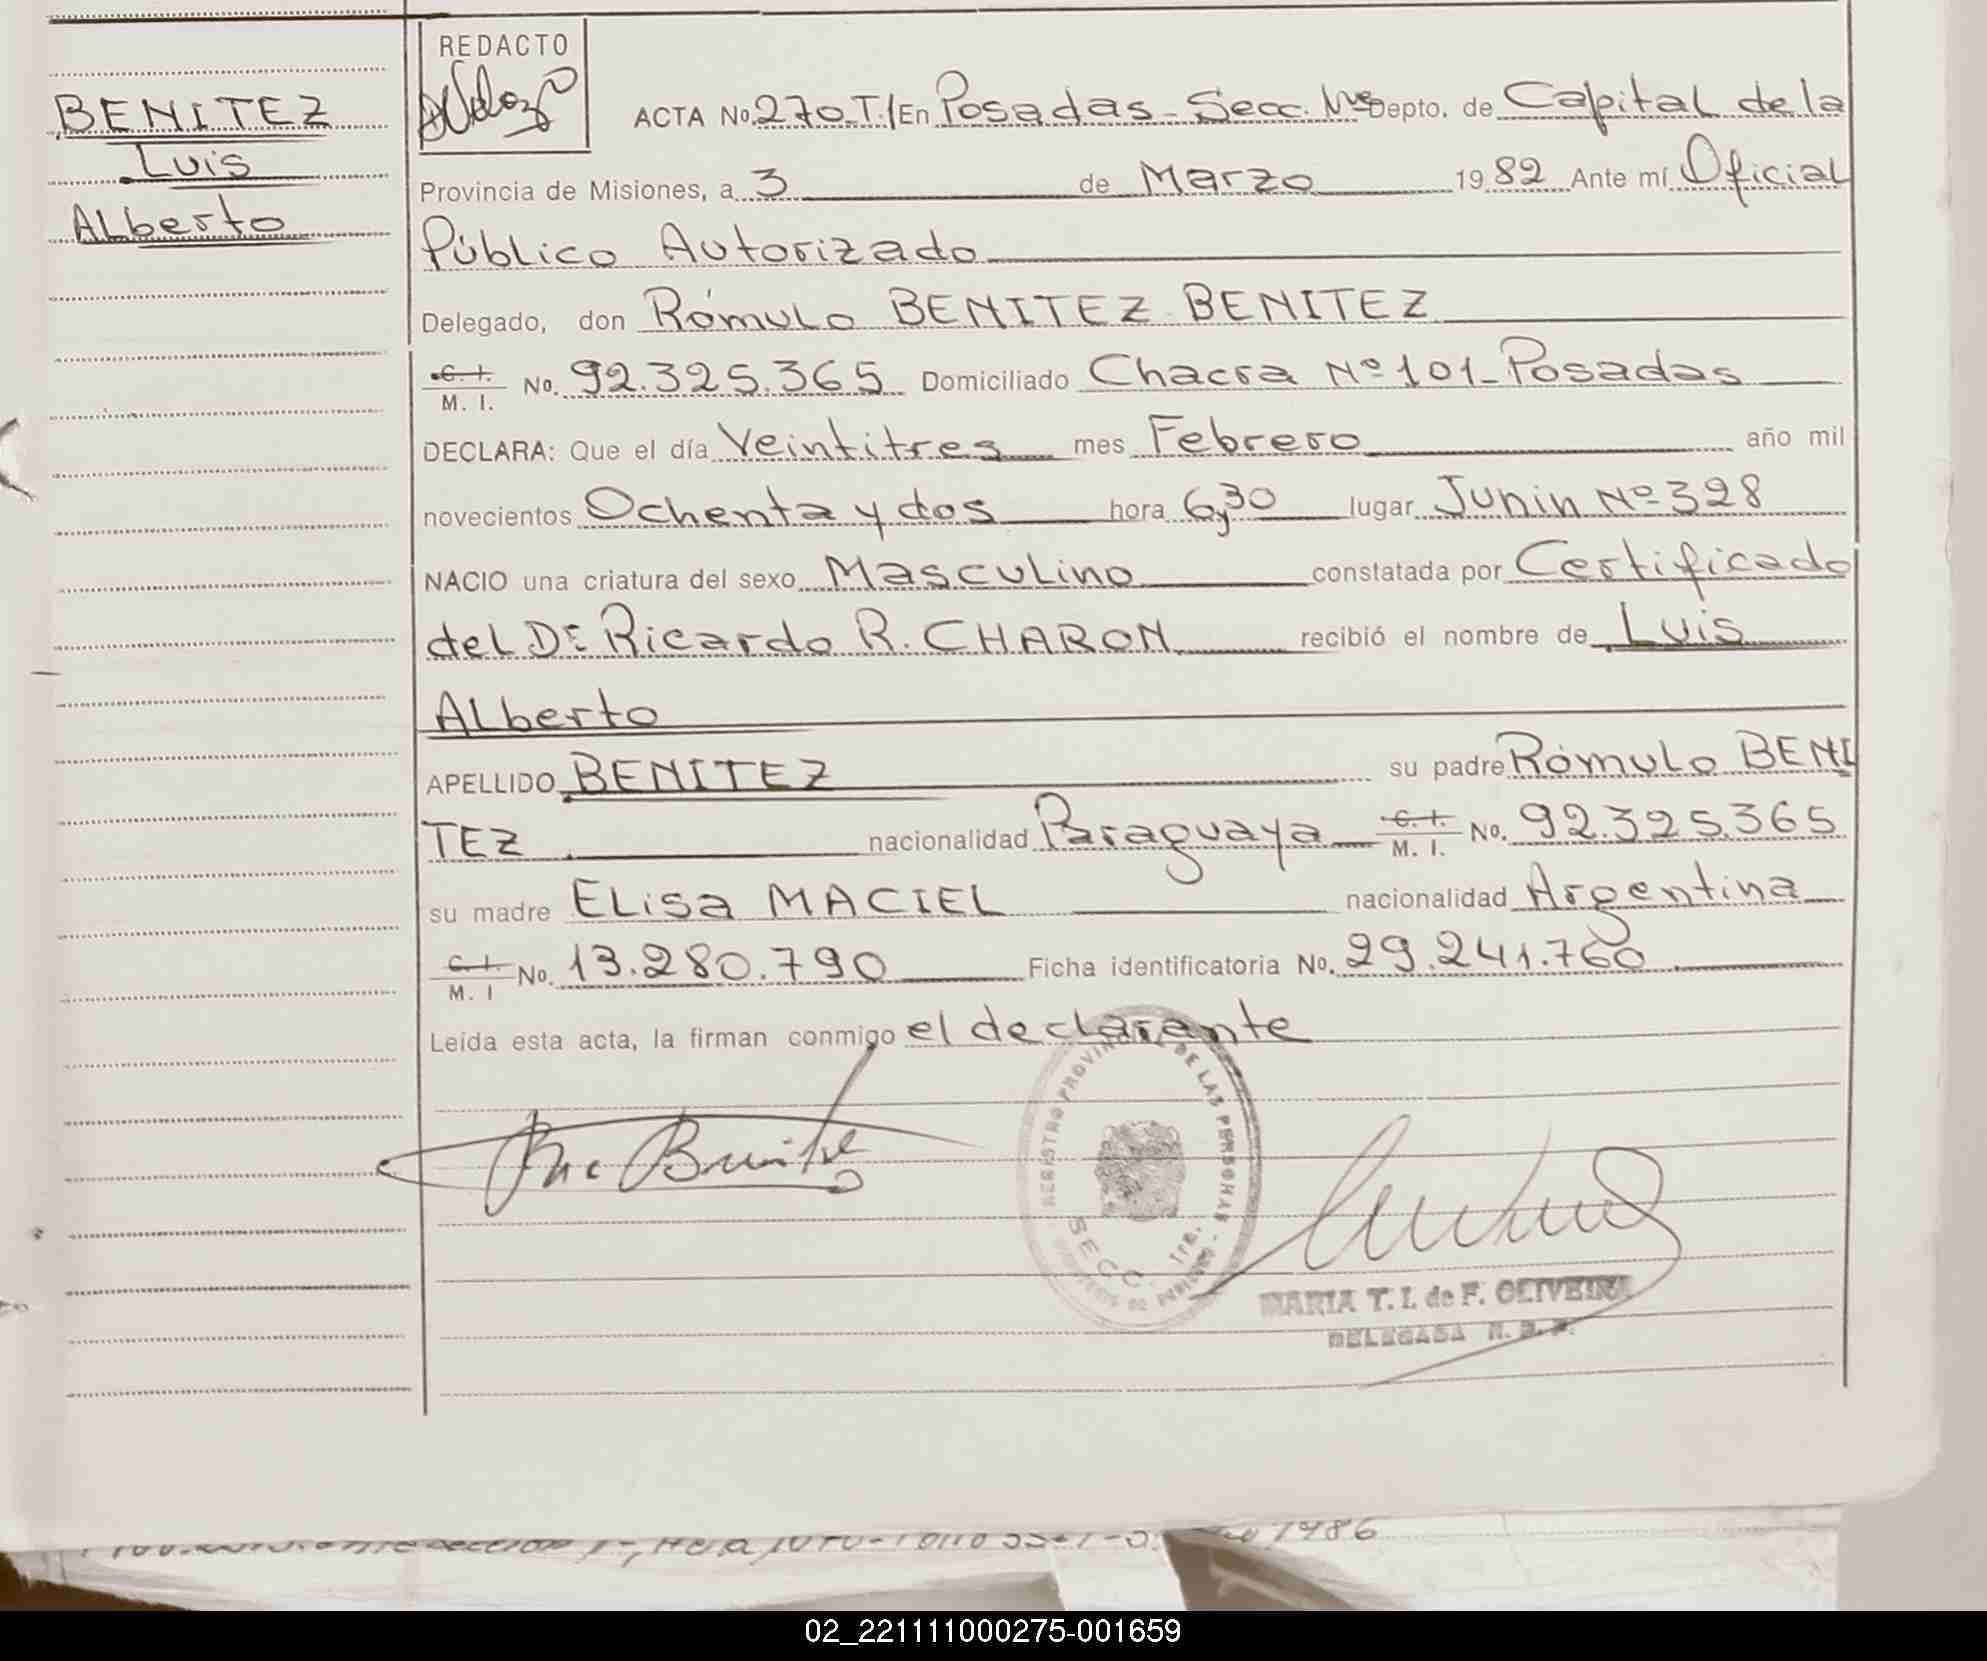 BENITEZ
Luis
ALberto
REDACTO
ACTA No. 270 T.I En Posadas - Secc. 1ra Depto. de Capital de la
Provincia de Misiones, a 3 de Marzo 1982 Ante mí Oficial
Público Autorizado
Delegado, don Rómulo BENITEZ BENITEZ
C. I.
M. I. No. 92.325.365 Domiciliado Chacra Nº 101 - Posadas
DECLARA: Que el día Veintitres mes Febrero año mil
novecientos Ochenta y dos hora 6,30 lugar Junin Nº 328
NACIO una criatura del sexo Masculino constatada por Certificado
del Dr Ricardo R. CHARON recibió el nombre de Luis
ALberto
APELLIDO BENITEZ su padre Rómulo BENI
TEZ nacionalidad Paraguaya C. I. M. I. No. 92.325.365
su madre ELisa MACIEL nacionalidad Argentina
C. I.
M. I No. 13.280.790 Ficha identificatoria No. 29.241.760
Leída esta acta, la firman conmigo el declarante
REGISTRO PROVINCIAL DE LAS PERSONAS
SECC. 1ra.
MARIA T. I. de F. OLIVEIRA
DELEGADA R. P. P.
1986
02_221111000275-001659